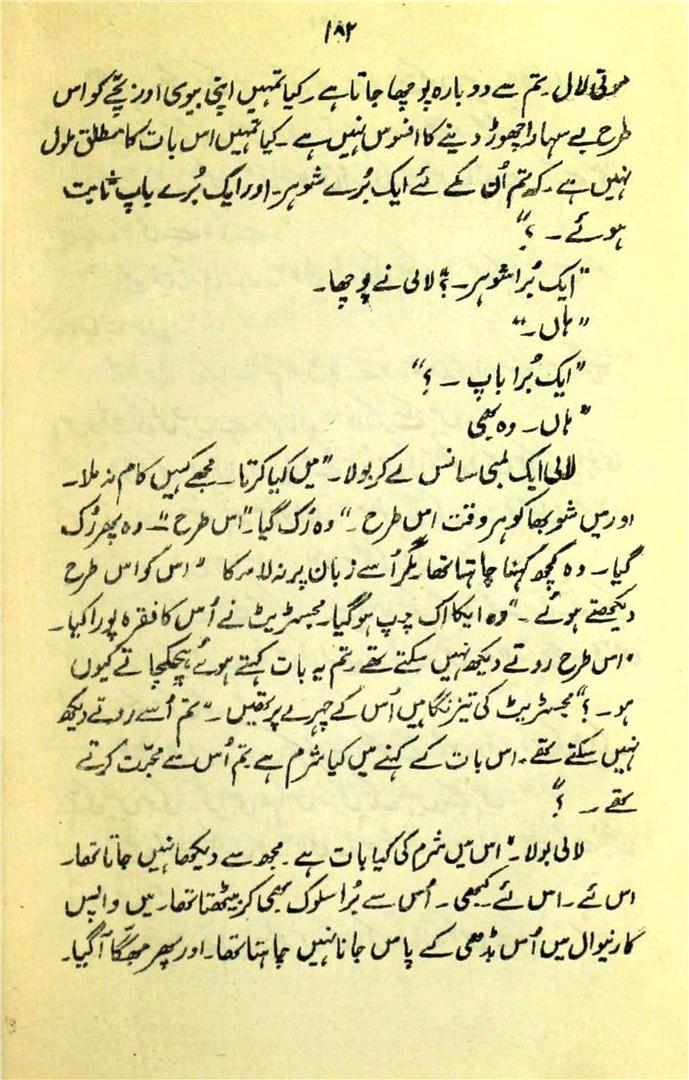 ۱۸۲
موتی لال۔ تم سے دوبارہ پوچھا جاتا ہے۔ کیا تمہیں اپنی بیوی اور بچّے کو اس
طرح بے سہارا چھوڑ دینے کا افسوس نہیں ہے۔ کیا تمہیں اس بات کا مطلق ملول
نہیں ہے۔ کہ تم اُن کے لئے ایک بُرے شوہر۔ اور ایک بُرے باپ ثابت
ہوئے۔ ؟"
"ایک بُرا شوہر۔ ؟" لالی نے پوچھا۔
"ہاں۔"
"ایک بُرا باپ ۔ ؟"
"ہاں۔ وہ بھی
لالی ایک لمبی سانس لے کر بولا۔ "میں کیا کرتا۔ مجھے کہیں کام نہ ملا۔
اور میں شوبھا کو ہر وقت اس طرح۔" وہ رُک گیا۔ "اس طرح"۔ وہ پھر رُک
گیا۔ وہ کچھ کہنا چاہتا تھا۔ مگر اُسے زبان پر نہ لا سکا "اس کو اس طرح
دیکھتے ہوئے۔" وہ ایکا اک چپ ہو گیا۔ مجسٹریٹ نے اُس کا فقرہ پورا کیا۔
"اس طرح روتے دیکھ نہیں سکتے تھے۔ تم یہ بات کہتے ہوئے ہچکچاتے کیوں
ہو۔ ؟" مجسٹریٹ کی تیز نگاہیں اُس کے چہرے پر تھیں۔ "تم اُسے روتے دیکھ
نہیں سکتے تھے۔ اس بات کے کہنے میں کیا شرم ہے تم اُس سے محبّت کرتے
تھے۔ ؟"
لالی بولا۔ "اس میں شرم کی کیا بات ہے۔ مجھ سے دیکھا نہیں جاتا تھا۔
اس لئے۔ اس لئے کبھی۔ اُس سے بُرا سلوک بھی کر بیٹھتا تھا۔ میں واپس
کارنیوال میں اُس بڈھی کے پاس جانا نہیں چاہتا تھا۔ اور پھر مھنگّا آگیا۔